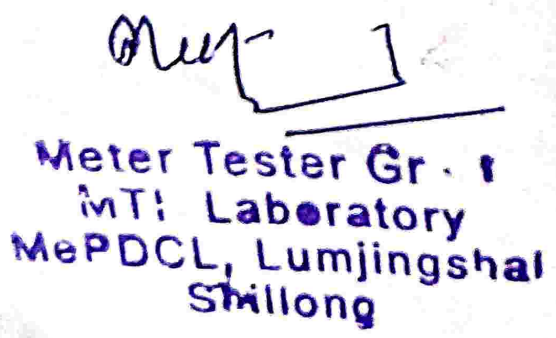 Meter Tester Gr. I
MTI Laboratory
MePDCL, Lumjingshai
Shillong